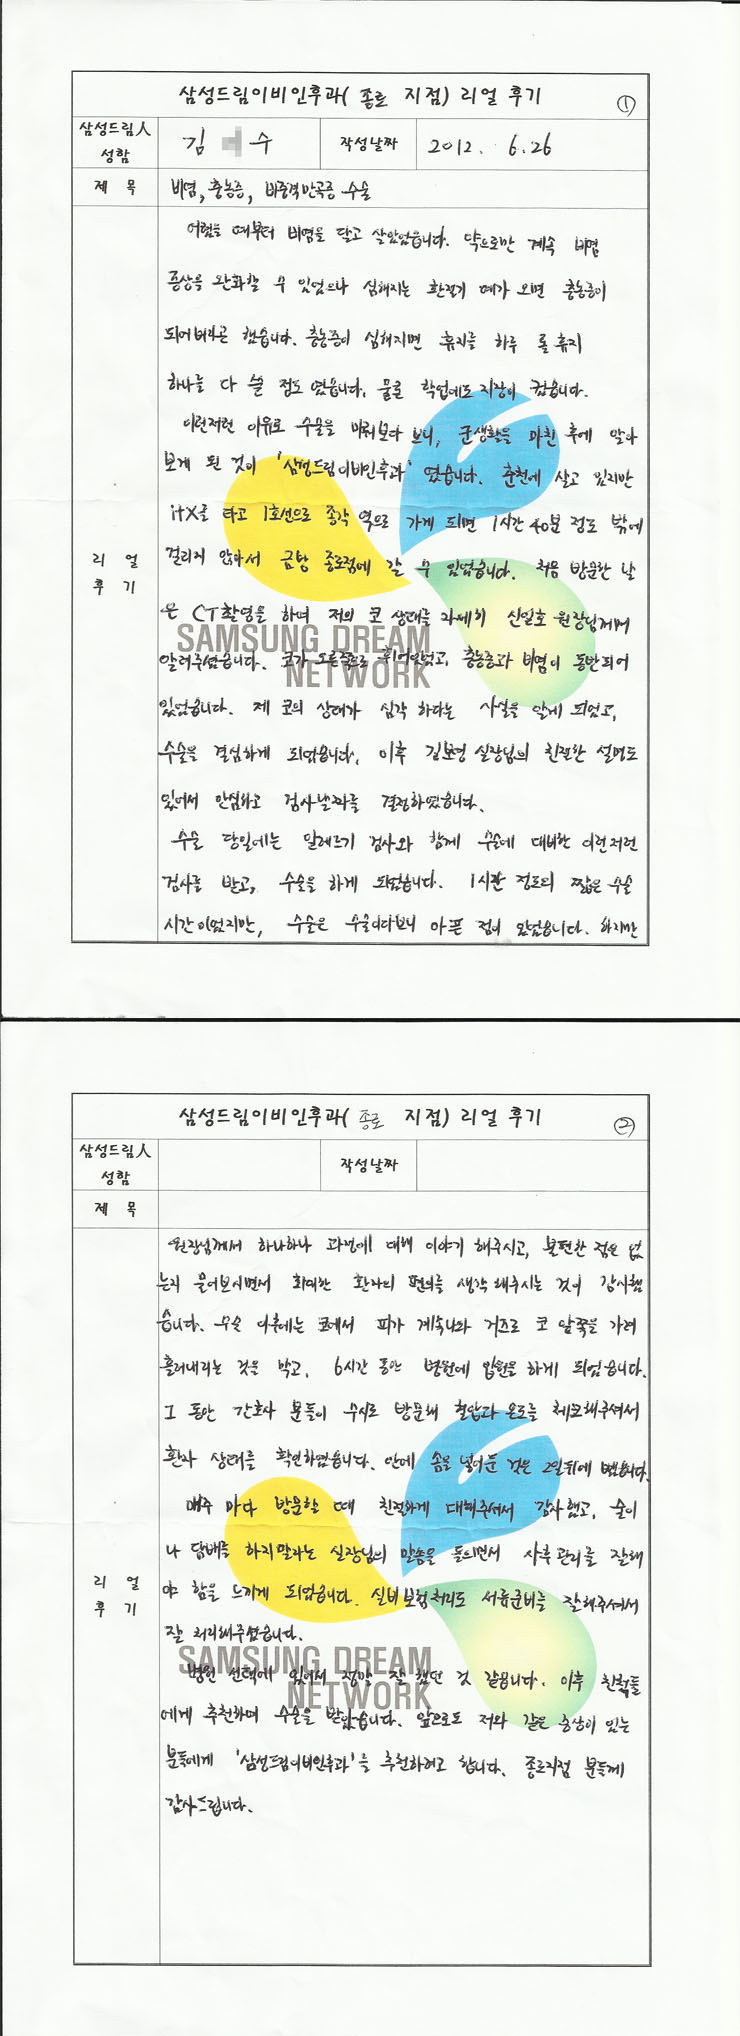 삼성드림이비인후과( 종로 지점) 리얼 후기 ①
삼성드림人 성함
김 수
작성날짜
2012. 6.26
제 목
비염, 충농증, 비중격만곡증 수술
리 얼
후 기
어렸을 때부터 비염을 달고 살았었습니다. 약으로만 계속 비염
증상을 완화할 수 있었으나 심해지는 환절기 때가 오면 충농증이
되어버리곤 했습니다. 충농증이 심해지면 휴지를 하루 롤휴지
하나를 다 쓸 정도 였습니다. 물론 학업에도 지장이 컸습니다.
이런저런 이유로 수술을 미뤄보다 보니, 군생활을 마친 후에 알아
보게 된 것이 '삼성드림이비인후과' 였습니다. 춘천에 살고 있지만
itx를 타고 1호선으로 종각 역으로 가게 되면 1시간 40분 정도 밖에
걸리지 않아서 금방 종로점에 갈 수 있었습니다. 처음 방문한 날
은 CT촬영을 하며 저의 코 상태를 자세히 신일호 원장님께서
알려주셨습니다. 코가 오른쪽으로 휘어있었고, 충농증과 비염이 동반되어
있었습니다. 제 코의 상태가 심각 하다는 사실을 알게 되었고,
수술을 결심하게 되었습니다. 이후 김보영 실장님의 친절한 설명도
있어서 안심하고 검사날짜를 결정하였습니다.
수술 당일에는 알레르기 검사와 함께 수술에 대비한 이런저런
검사를 받고, 수술을 하게 되었습니다. 1시간 정도의 짧은 수술
시간이었지만, 수술은 수술이다보니 아픈 점이 있었습니다. 하지만
SAMSUNG DREAM
NETWORK
삼성드림이비인후과( 종로 지점) 리얼 후기 ②
삼성드림人 성함
작성날짜
제 목
리 얼
후 기
원장님께서 하나하나 과정에 대해 이야기 해주시고, 불편한 점은 없
는지 물어보시면서 최대한 환자의 편의를 생각해주시는 것이 감사했
습니다. 수술 이후에는 코에서 피가 계속나와 거즈로 코 앞쪽을 가려
흘러내리는 것을 막고, 6시간 동안 병원에 입원을 하게 되었습니다.
그 동안 간호사 분들이 수시로 방문해 혈압과 온도를 체크해주셔서
환자 상태를 확인하였습니다. 안에 솜을 넣어둔 것은 2일뒤에 뺐습니다.
매주 마다 방문할 때 친절하게 대해주셔서 감사했고, 술이
나 담배를 하지말라는 실장님의 말씀을 들으면서 사후관리를 잘해
야 함을 느끼게 되었습니다. 실비보험처리도 서류준비를 잘해주셔서
잘 처리해주셨습니다.
병원 선택에 있어서 정말 잘 했던 것 같습니다. 이후 친척들
에게 추천하며 수술을 받았습니다. 앞으로도 저와 같은 증상이 있는
분들에게 '삼성드림이비인후과'를 추천하려고 합니다. 종로지점 분들께
감사드립니다.
SAMSUNG DREAM
NETWORK